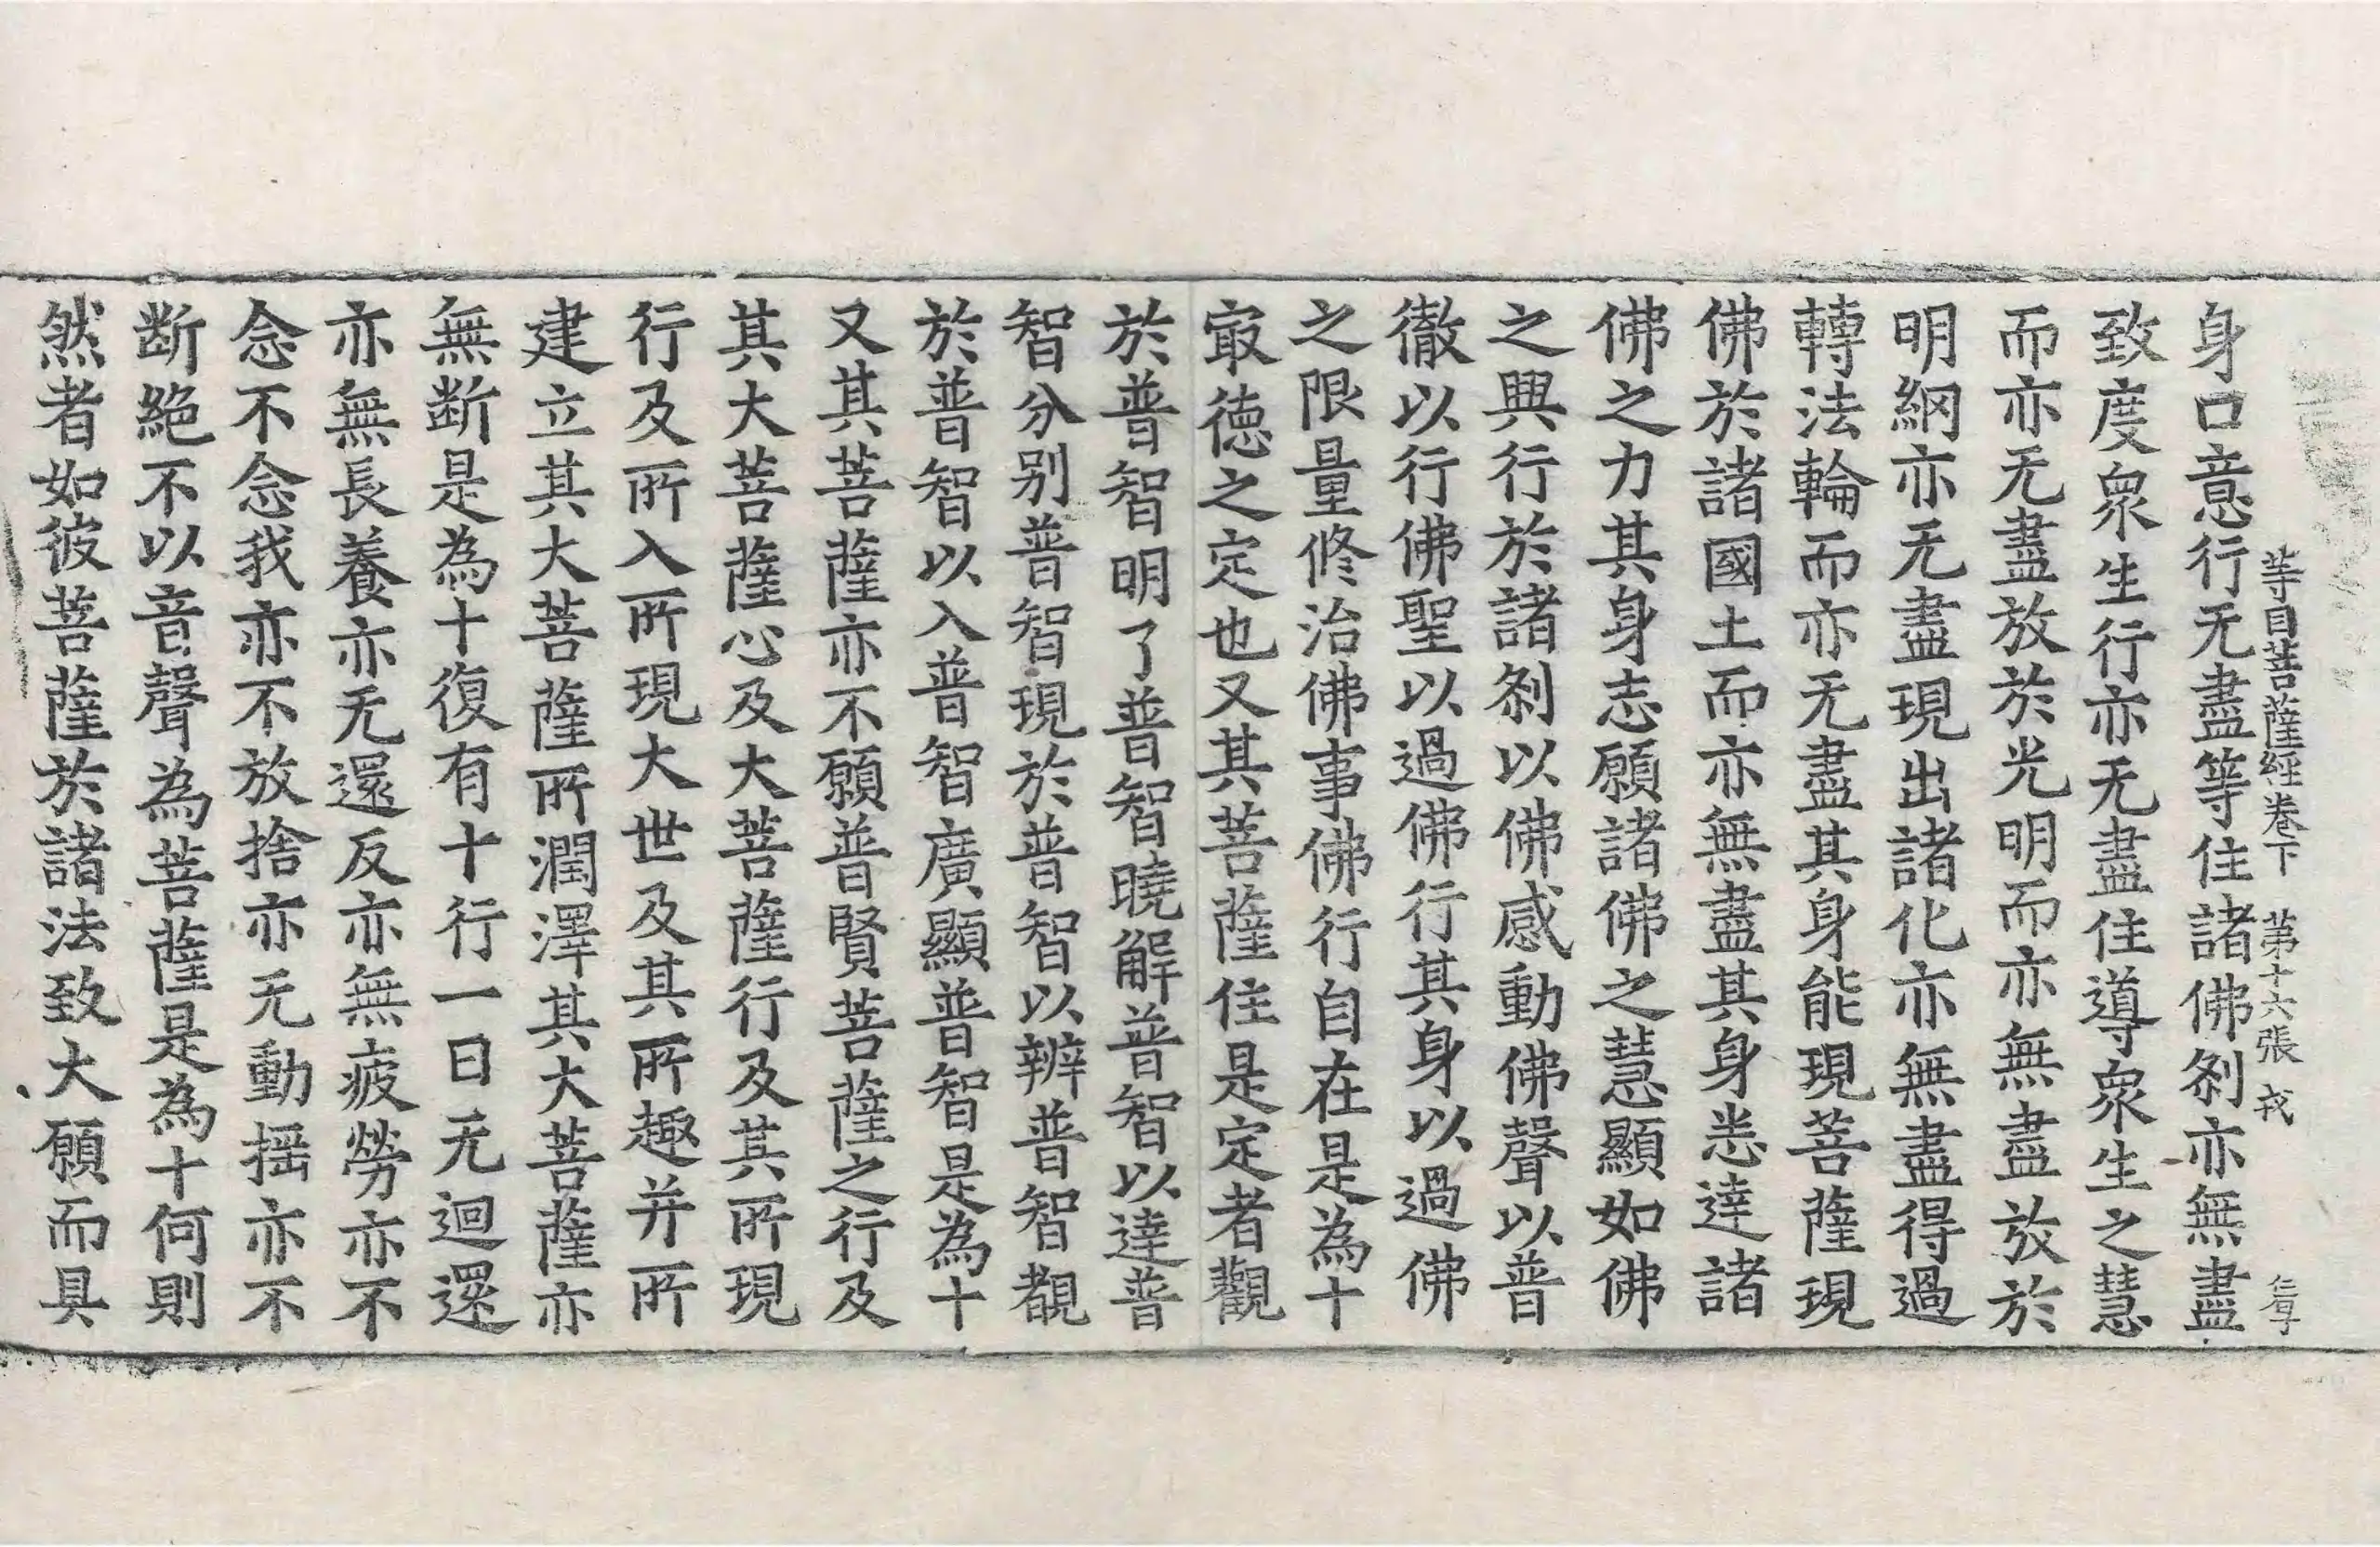 等目菩薩經卷下 第十六張 戎
身口意行无盡等住諸佛剎亦無盡
致度衆生行亦无盡住導衆生之慧
而亦无盡放於光明而亦無盡放於
明網亦无盡現出諸化亦無盡得過
轉法輪而亦无盡其身能現菩薩現
佛於諸國土而亦無盡其身悉達諸
佛之力其身志願諸佛之慧顯如佛
之興行於諸剎以佛感動佛聲以普
徹以行佛聖以過佛行其身以過佛
之限量修治佛事佛行自在是為十
㝡德之定也又其菩薩住是定者觀
於普智明了普智曉解普智以達普
智分别普智現於普智以辨普智覩
於普智以入普智廣顯普智是為十
又其菩薩亦不願普賢菩薩之行及
其大菩薩心及大菩薩行及其所現
行及所入所現大世及其所趣并所
建立其大菩薩所潤澤其大菩薩亦
無断是為十復有十行一曰无迴還
亦無長養亦无還反亦無疲勞亦不
念不念我亦不放捨亦无動揺亦不
断絕不以音聲為菩薩是為十何則
然者如彼菩薩於諸法致大願而具